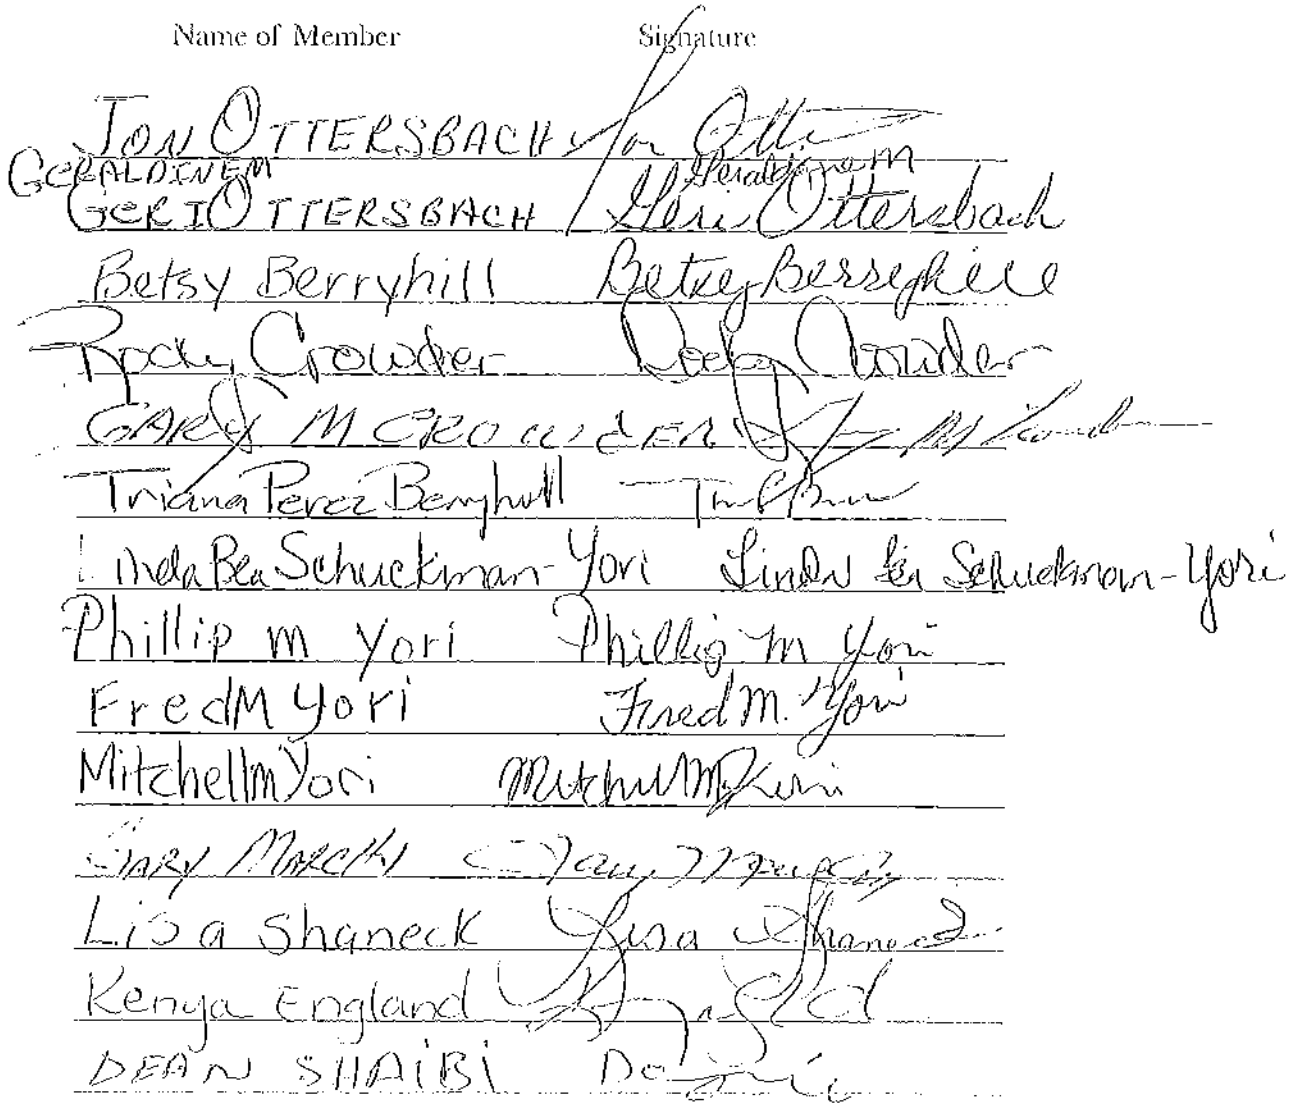 Name of Member Signature
JON OTTERSBACH Jon Otte
GERALDINE M Geraldine M
GERI OTTERSBACH Geri Ottersbach
Betsy Berryhill Betsy Berryhill
Rocky Crowder Crowder
GARY M CROWDER
Triana Perez Berryhill
Linda Bea Schuckman-Yori Linda Bea Schuckman-Yori
Phillip m Yori Phillip m Yori
Fred M Yori Fred M. Yori
Mitchell m Yori Mitchell M Yori
GARY MARCHI Gary
Lisa Shaneck Lisa Shaneck
Kenya England
DEAN SHAiBi